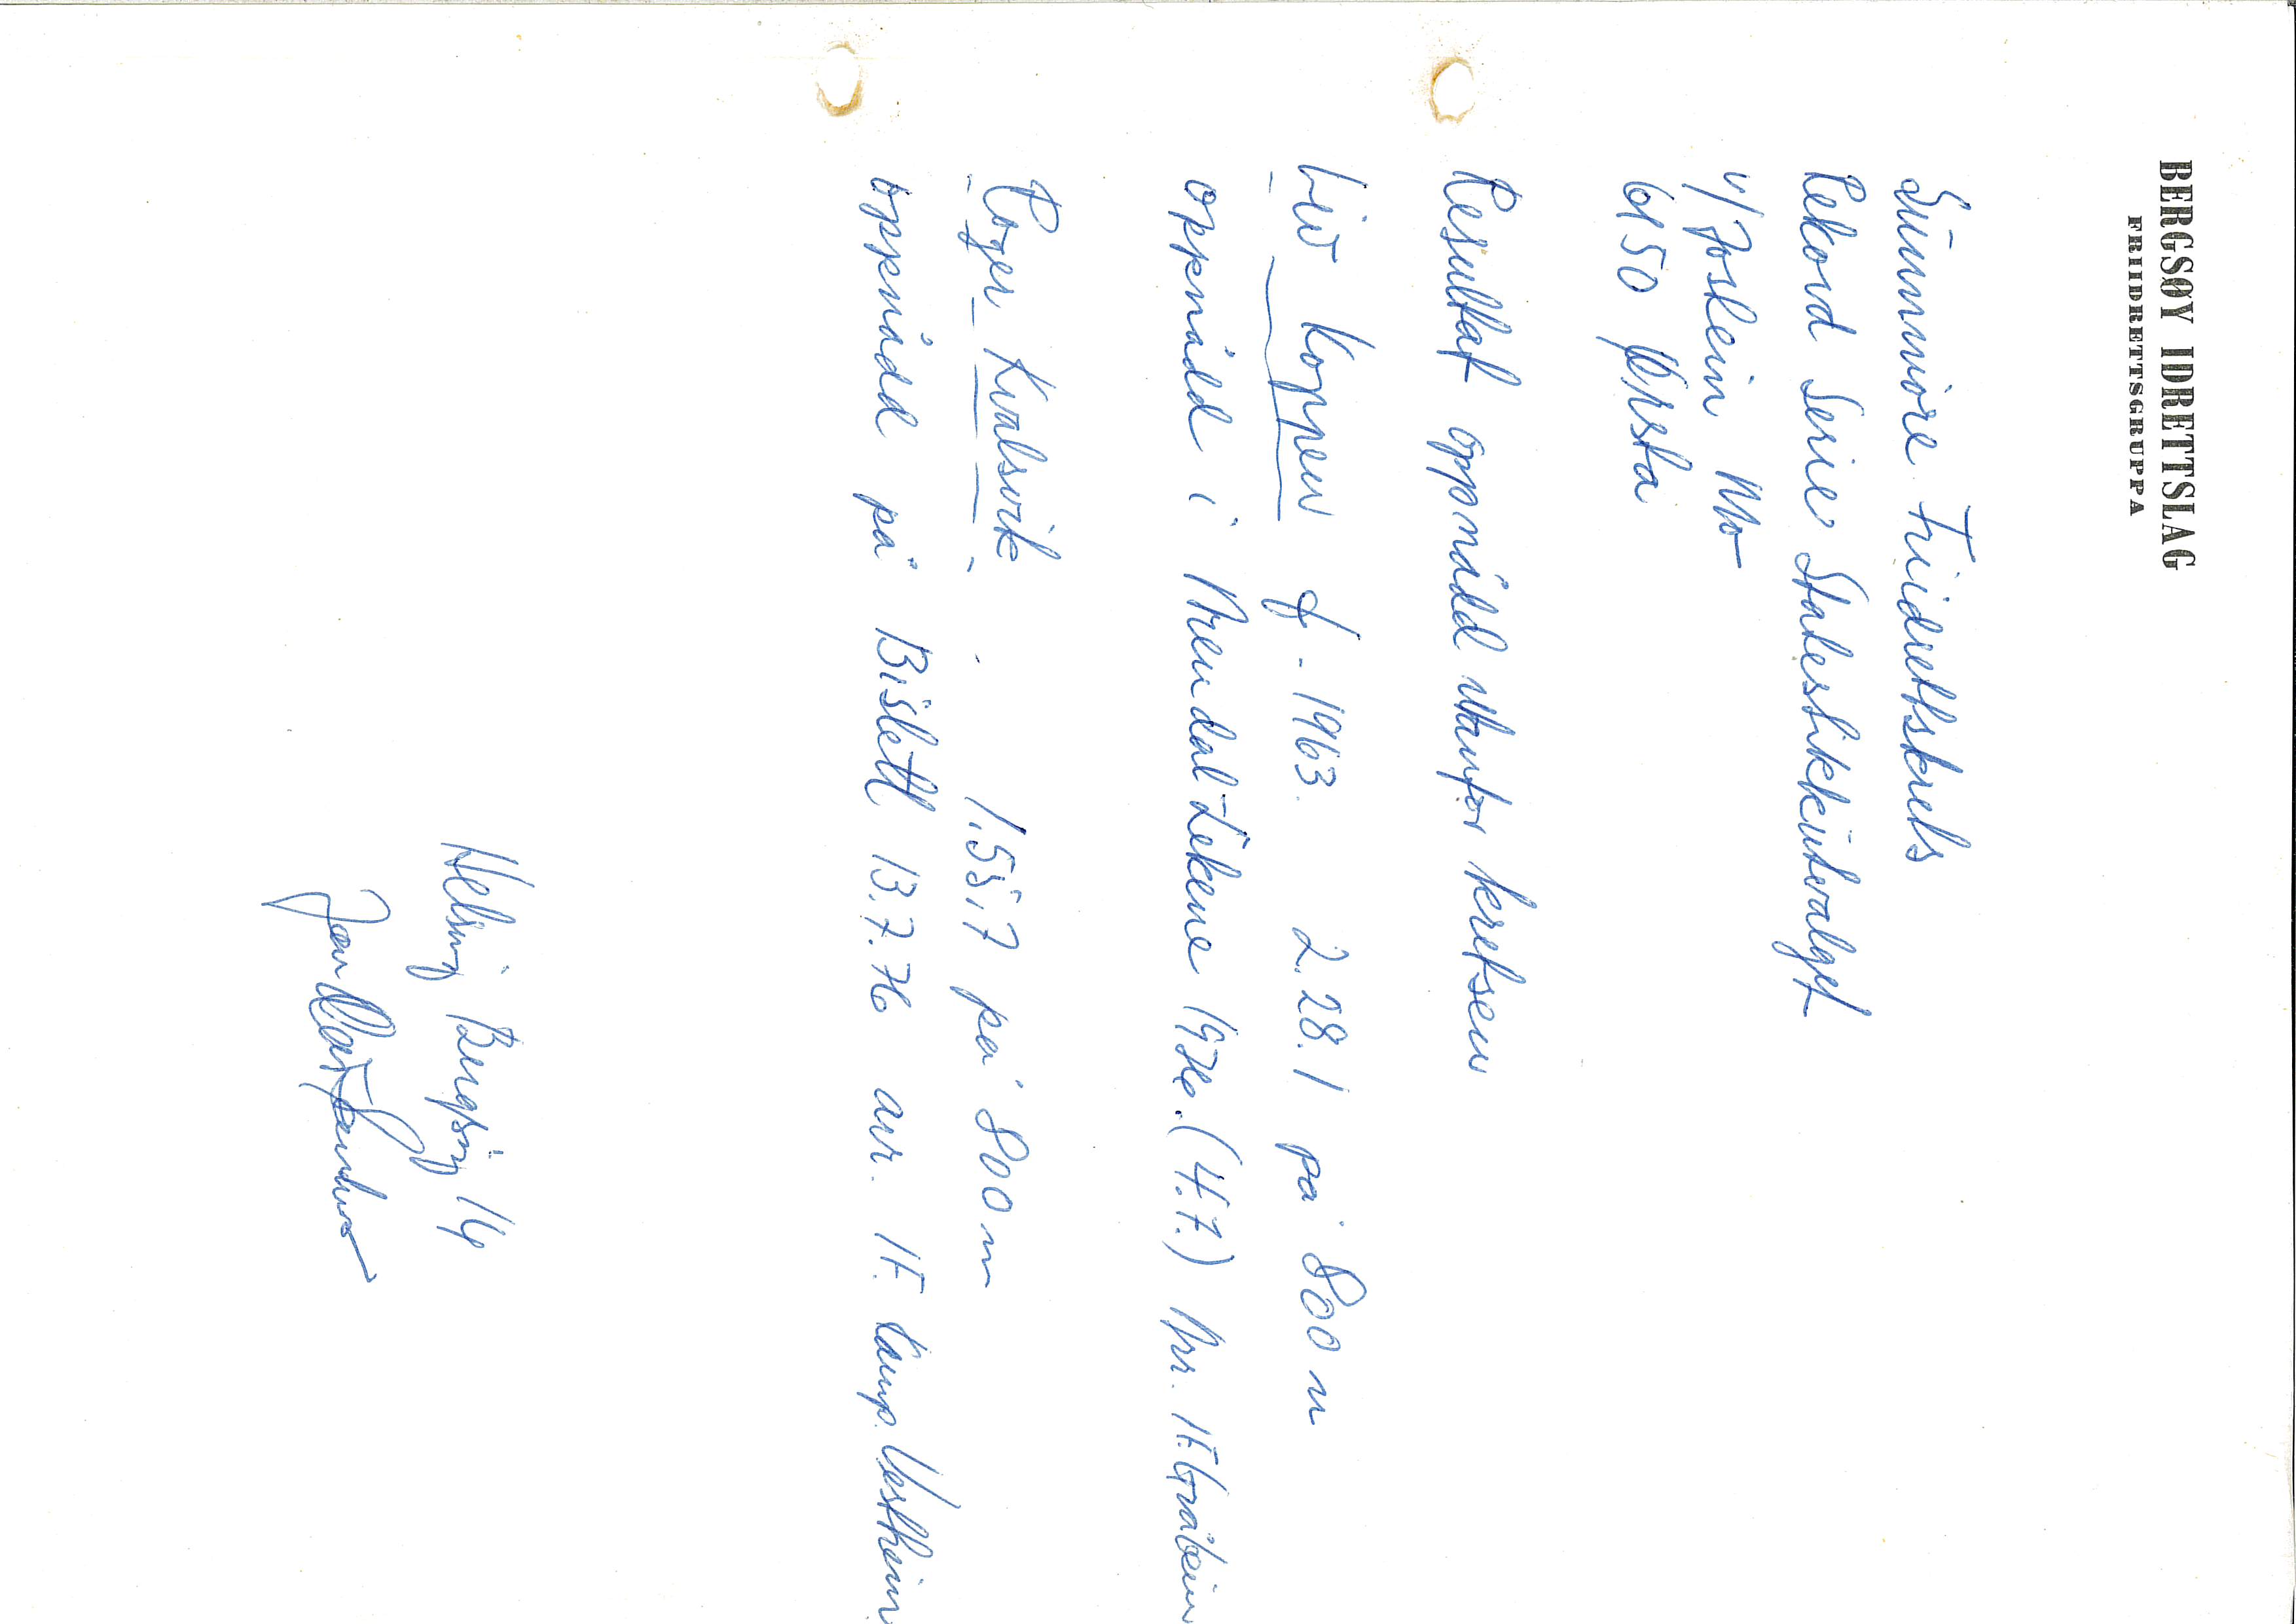 BERGSØY IDRETTSLAG
FRIIDRETTSGRUPPA
Sunnmøre Friidrettskrets
Rekord Serie Statestikkutvalget
v/ Jostein Mo
6150 Ørsta
Resultat oppnådd utanfor kretsen
Liv Koppen f - 1963. 2.28.1 på 800 m
oppnådd i Trøndal Lekene 1976. (4.7.) Arr. IF
Roger Kvalsvik 1.55,7 på 800 m
oppnådd på Bislett 13.7.76 arr. IF
Helsing Bergsøy IL
Jan